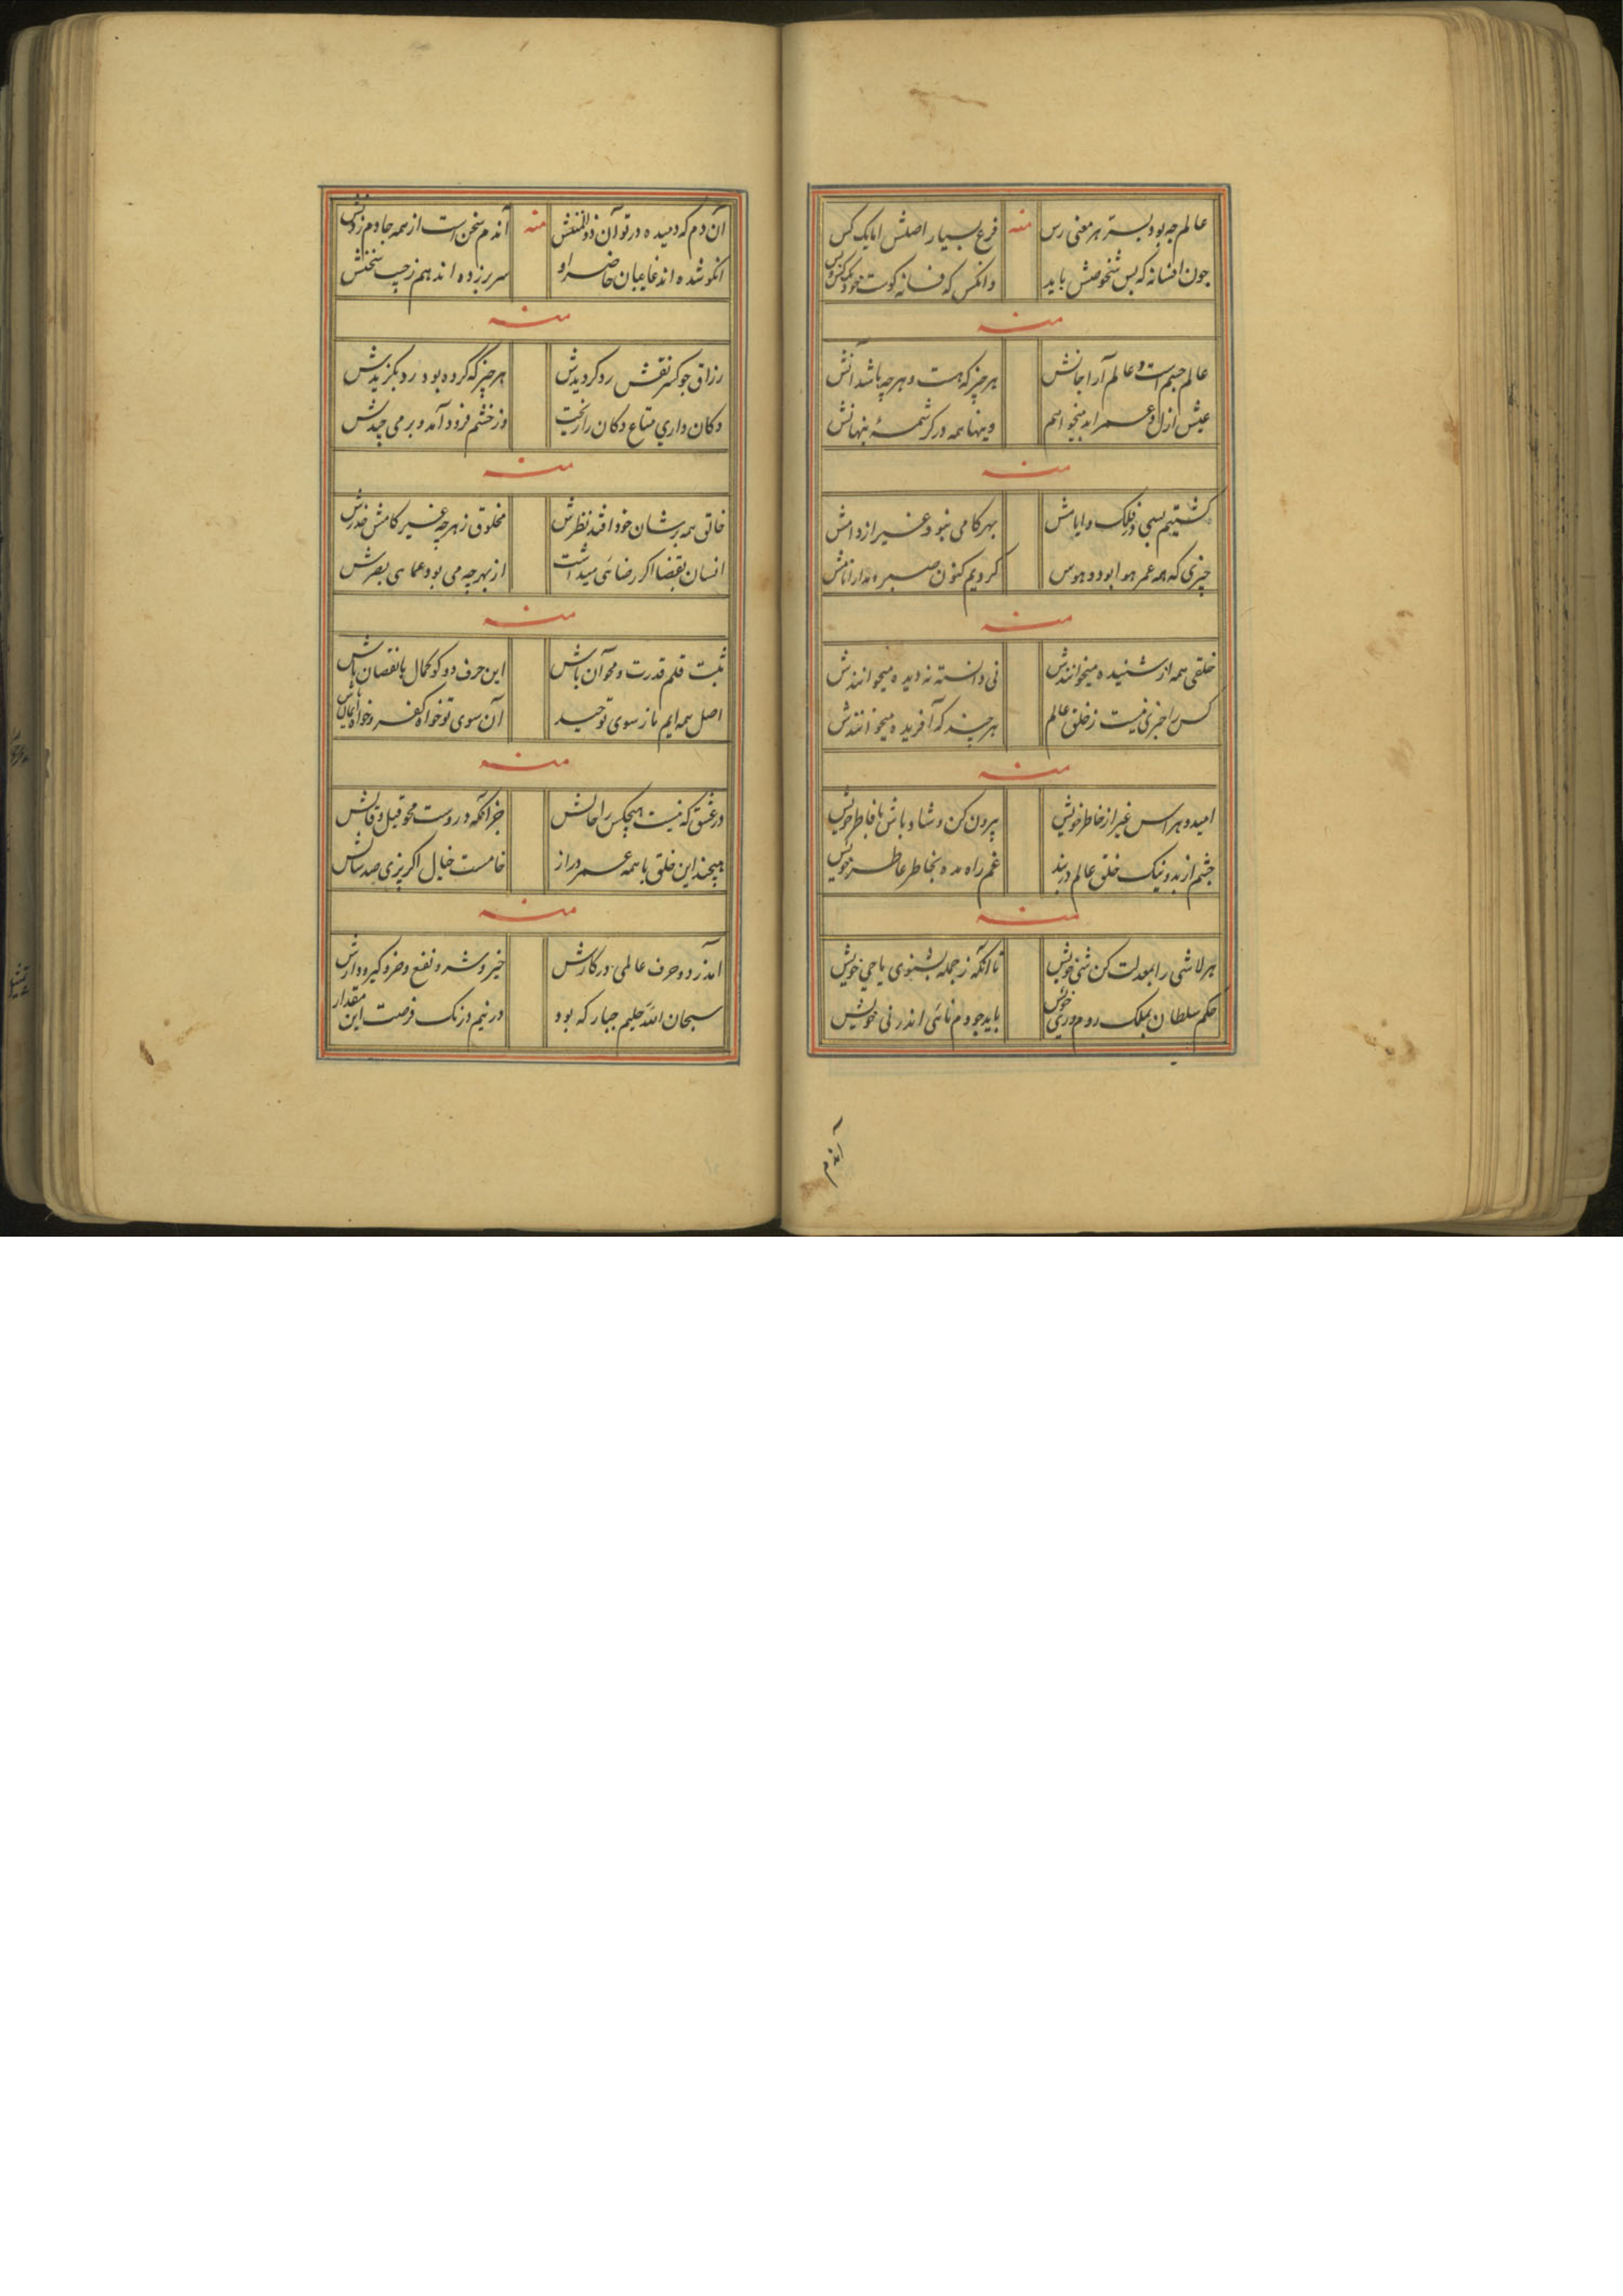 عالم چه بود بستر هر معنی رس منه فرع بسیار اصلش اما یک کس
چون افسانه که بس شخوصش باید وانکس که فسانه گوست خود یکس و بس
منه
عالم جسم است و عالم آرا جانش هر چیز که هست و هر چه باشد آنش
عیش ازل و عمر ابد میخواهم وینها همه در کرشمهٔ پنهانش
منه
گشتیم بسی در فلک و ایامش بهر کامی نبود غیر از دامش
چیزی که همه عمر هوا بود و هوس کردیم کنون صبر و مدارا نامش
منه
خلقی همه از شنیده میخوانندش نی دانسته نه دیده میخوانندش
کس را خبری نیست ز خلق عالم هر چند که آفریده میخوانندش
منه
امید و هراس غیر از خاطر خویش بیرون کن و شاد باش با فاطر خویش
چشم از بد و نیک خلق عالم در بند غم راه مده بخاطر عاطر خویش
منه
هر لاشی را بمعدلت کن شئ خویش تا آنکه ز جمله بشنوی یا حی خویش
حکم سلطان بملک روم و ری خویش باید چو دم نائی اندر نی خویش
آندم
آن دم که دمیده در تو آن ذوالمنش منه آندم سخن است از همه جا دم زدنش
سر برزده اند هم ز جیب سخنش
منه
رزاق چو کسر نقش رو گردیدش هر چیز که کرده بود رد بگزیدش
دکان داری متاع دکان را ریخت وز خشم فرود آمد و برمی چیدش
منه
خالق همه بر شان خود افتد نظرش مخلوق ز هر چه غیر کامش خدرش
انسان بقضا اگر رضائی میداشت از بهر چه می بود عما هی بصرش
منه
ثبت قلم قدرت و محو آن باش این حرف دو کو کمال یا نقصان باش
اصل همه ایم ما ز سوی توحید آن سوی تو خواه کفر و خواه ایمان باش
منه
در عشق که نیست هیچکس را حالش جز آنکه دروست محو قیل و قالش
می‌پچند این خلق با همه عمر دراز خامست خیال اگر پزی صد سالش
منه
آمد ز دو حرف عالمی در کارش خیر و شر و نفع و ضر و گیر و دارش
سبحان الله حلیم جبار که بود در نیم درنگ فرصت این مقدار